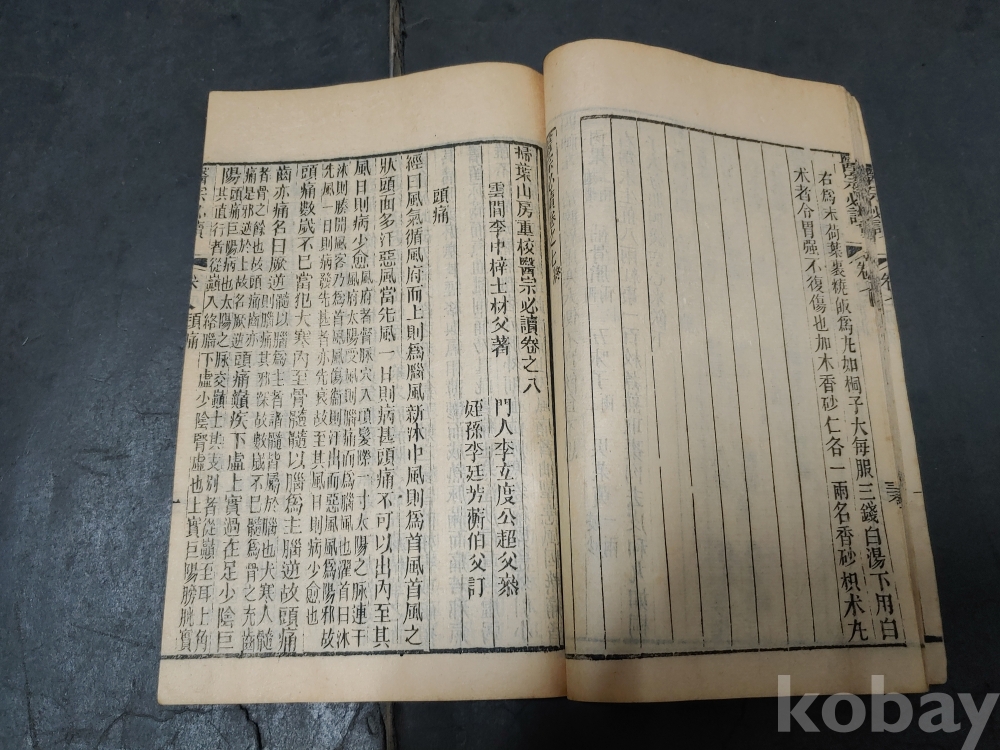 右爲末荷葉裹燒飯爲丸如桐子大每服三錢白湯下用白
朮者令胃強不復傷也加木香砂仁各一兩名香砂枳朮丸
掃葉山房重校醫宗必讀卷之八
雲間李中梓士材父著
門人李立度公超父叅
姪孫李廷芳蘅伯父訂
頭痛
經曰風氣循風府而上則爲腦風新沐中風則爲首風首風之
狀頭面多汗惡風當先風一日則病甚頭痛不可以出內至其
風日則病少愈風府者督脉穴入項髮際一寸太陽之脉連干
風府太陽受風則腦痛而爲腦風也濯首曰沐
沐則腠開風客乃爲首風風傷衛則汗出而惡風風爲陽邪故
先風一日則病發先甚者亦先衰故至其風日則病少愈也
頭痛數歲不已當犯大寒內至骨髓髓以腦爲主腦逆故頭痛
齒亦痛名曰厥逆髓以腦爲主者諸髓皆屬於腦也大寒入髓
則腦痛其邪深故數歲不已髓爲骨之充齒
者骨之餘也故頭痛齒亦
痛是邪逆於上故名厥逆頭痛巔疾下虛上實過在足少陰巨
陽頭痛巨陽病也太陽之脉交巔上其支別者從巔至耳上角
其直行者從巔入絡腦下虛少陰腎虛也上實巨陽膀胱實
醫宗必讀
卷八
頭痛
一
kobay